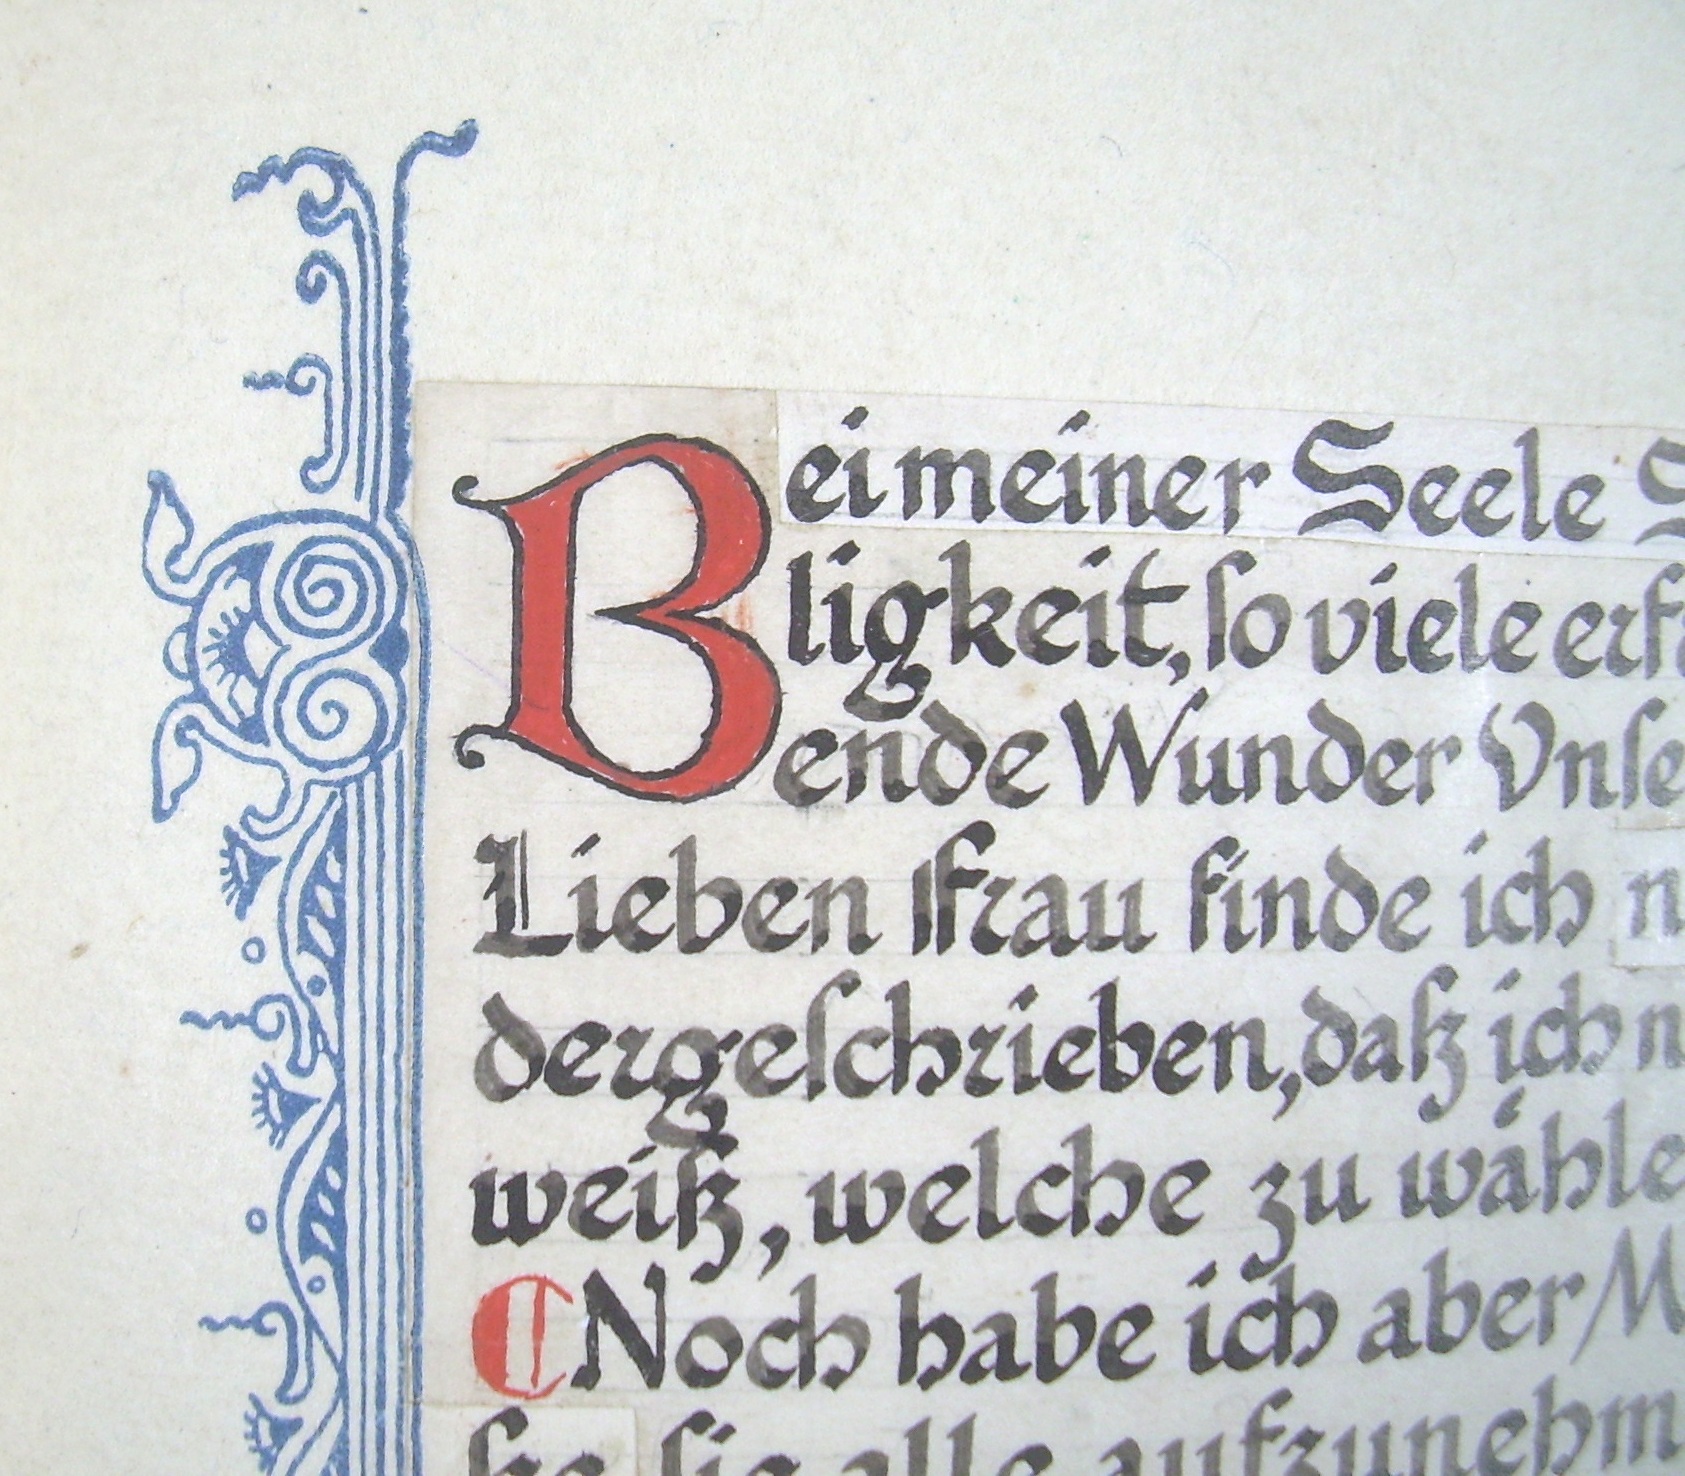 Bei meiner Seele S
ligkeit, ſo viele erf
ende Wunder Vnſe
Lieben Frau finde ich n
dergeſchrieben, daß ich n
weiß, welche zu wähle
¶ Noch habe ich aber M
ſie alle aufzunehm